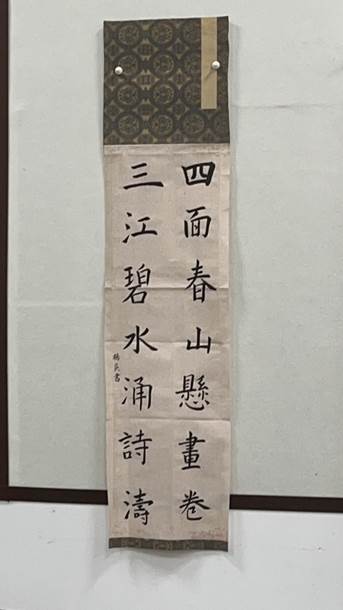 四面春山懸畫卷
三江碧水涌詩濤